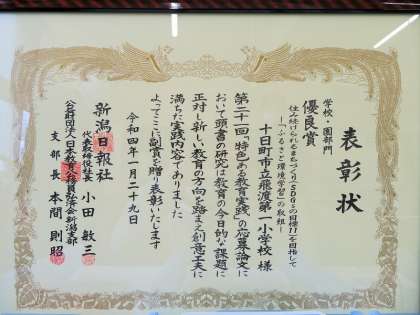 表彰状
学校・園部門
優良賞
住み続けられるまちづくり(SDGsの目標11)を目指して
―「ふるさと環境学習」の取組―
十日町市立飛渡第一小学校 様
第二十一回「特色ある教育実践」の応募論文に
おいて頭書の研究は教育の今日的な課題に
正対し新しい教育の方向を踏まえ創意工夫に
満ちた実践内容でありました
よってここに副賞を贈り表彰いたします
令和四年一月二十九日
新潟日報社
代表取締役社長 小田敏三
公益財団法人日本教育公務員弘済会新潟支部
支部長 本間則昭